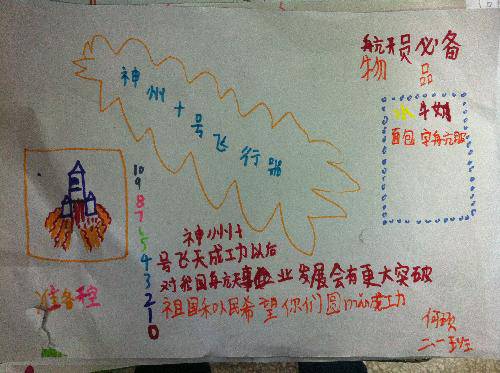 航天员必备
物品
神州十号飞行器
水 牛奶
面包 宇航服
10
9
8
7
6
5
4
3
2
1
0
准备
神州十
号飞天成功以后
对我国航天事业发展会有更大突破
祖国和人民希望你们圆mèng成功
二一班